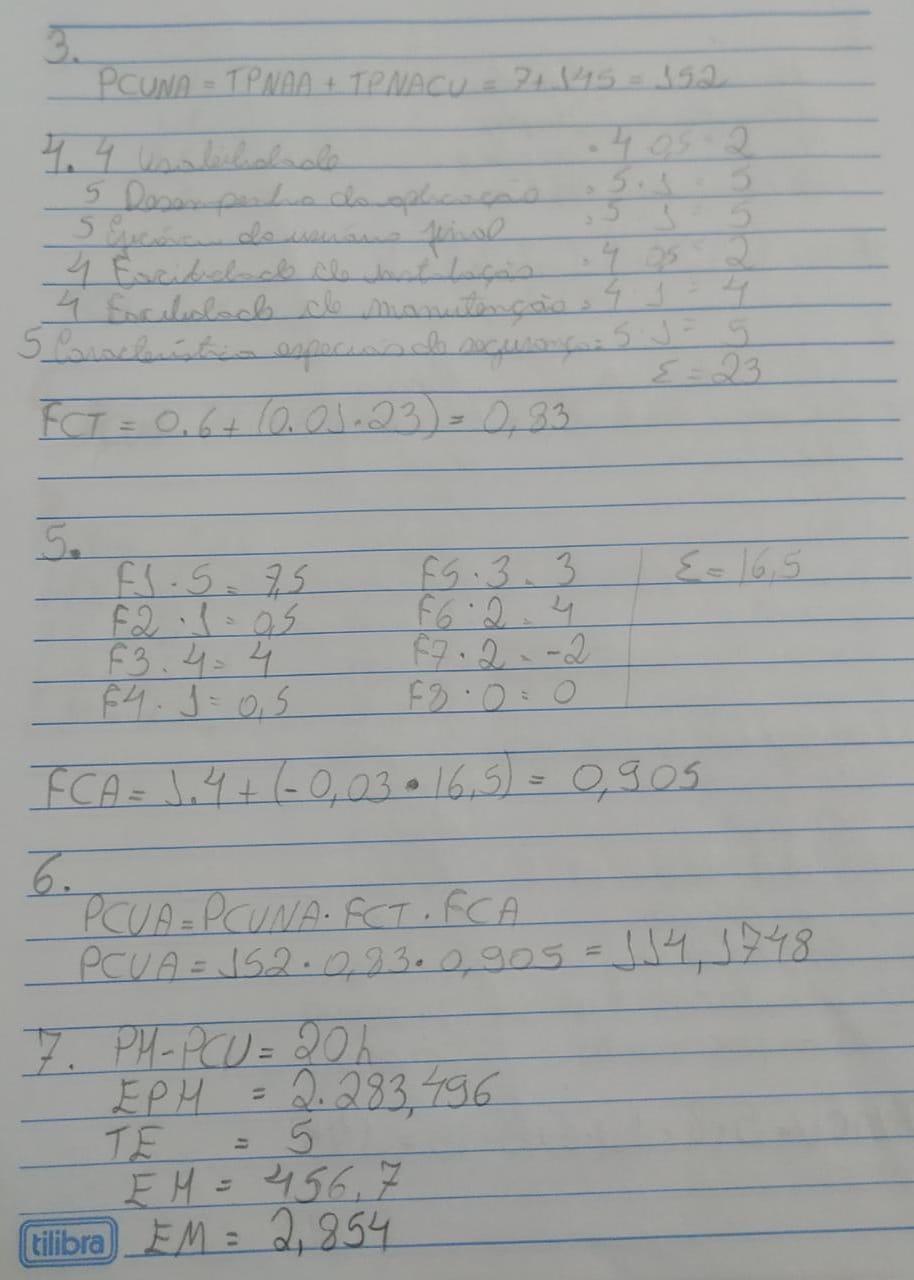 3.
PCUNA = TPNAA + TPNACU = 7+145 = 152
4. 4 Usabilidade . 4 0,5 = 2
5 Desempenho da aplicação . 5 . 1 = 5
5 do usuário final . 5 1 = 5
4 Facilidade de instalação . 4 0,5 = 2
4 Facilidade de manutenção . 4 . 1 = 4
5 Característica especiais de segurança : 5 1 = 5
Σ = 23
FCT = 0.6 + (0.01 . 23) = 0,83
5.
F1 . 5 = 7,5 F5 . 3 = 3 Σ = 16,5
F2 . 1 = 0,5 F6 . 2 = 4
F3 . 4 = 4 F7 . 2 = -2
F4 . 1 = 0,5 F8 . 0 = 0
FCA = 1.4 + (-0,03 . 16,5) = 0,905
6.
PCUA = PCUNA . FCT . FCA
PCUA = 152 . 0,83 . 0,905 = 114,1748
7. PH-PCU = 20h
EPH = 2.283,496
TE = 5
EH = 456,7
EM = 2,854
tilibra